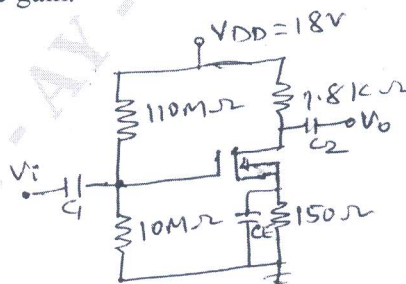 gain.
VDD=18V
110MΩ
1.8KΩ
Vo
C2
Vi
C1
10MΩ
CE
150Ω